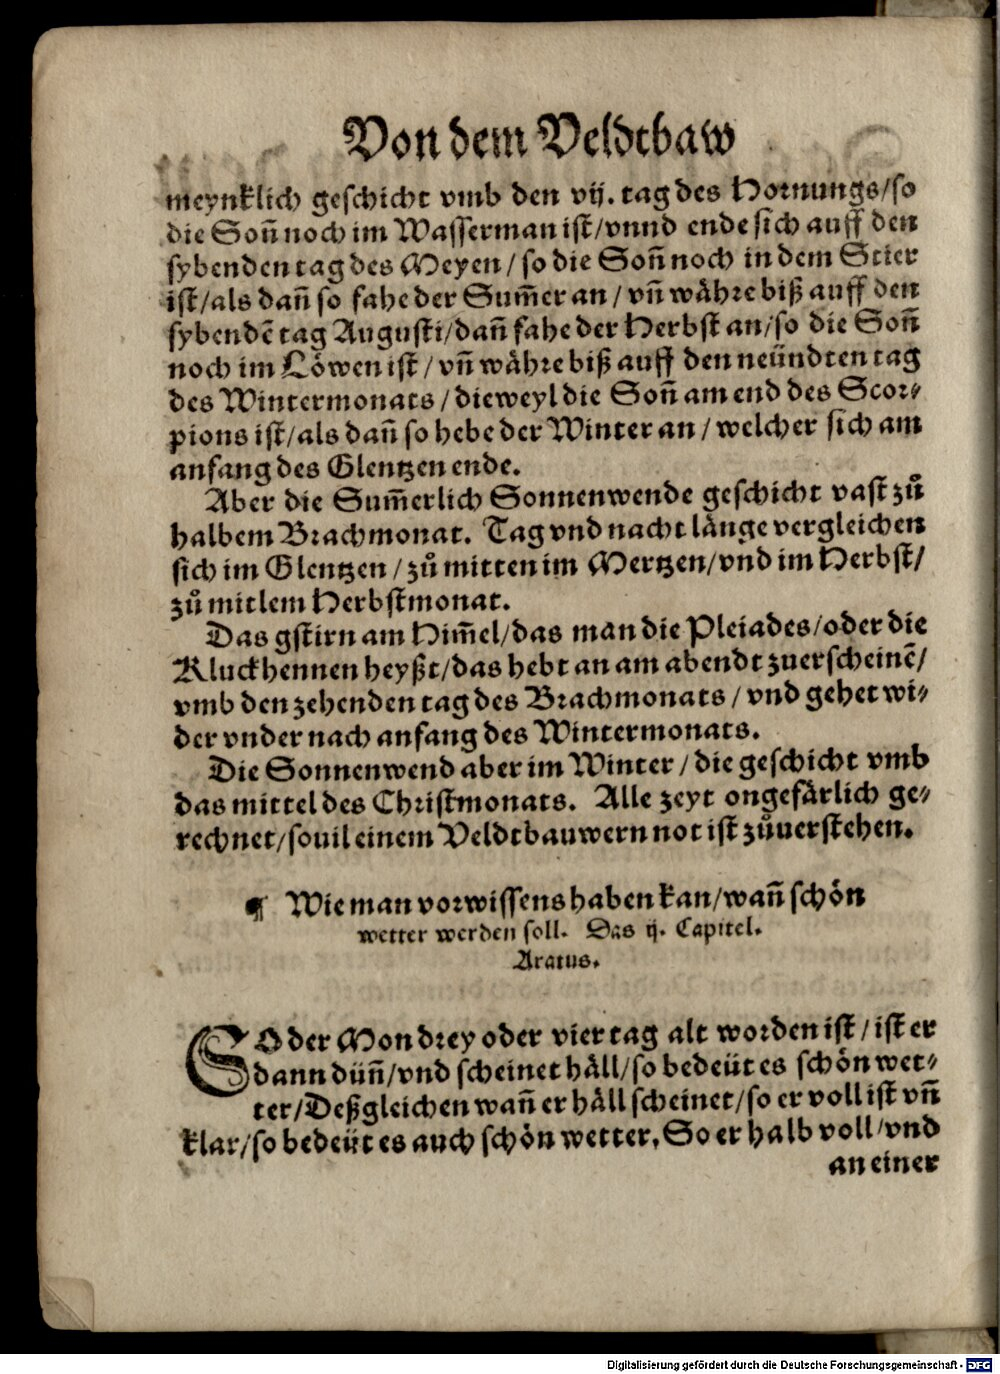 Von dem Veldtbaw
meynklich geschicht vmb den vij. tag des Hornungs/so
die Soñ noch im Wasserman ist/vnnd ende sich auff den
sybenden tag des Meyen/so die Soñ noch in dem Stier
ist/als dañ so fahe der Sum̃er an/vñ währe biß auff den
sybendẽ tag Augusti/dañ fahe der Herbst an/so die Soñ
noch im Löwen ist/vñ währe biß auff den neündten tag
des Wintermonats/dieweyl die Soñ am end des Scor⸗
pions ist/als dañ so hebe der Winter an/welcher sich am
anfang des Glentzen ende.
Aber die Sum̃erlich Sonnenwende geschicht vast zů
halbem Brachmonat. Tag vnd nacht länge vergleichen
sich im Glentzen/zů mitten im Mertzen/vnd im Herbst/
zů mitlem Herbstmonat.
Das gstirn am Him̃el/das man die Pleiades/oder die
Kluckhennen heyßt/das hebt an am abendt zuerscheinẽ/
vmb den zehenden tag des Brachmonats/vnd gehet wi⸗
der vnder nach anfang des Wintermonats.
Die Sonnenwend aber im Winter/die geschicht vmb
das mittel des Christmonats. Alle zeyt ongefärlich ge⸗
rechnet/souil einem Veldtbauwern not ist zůuerstehen.
¶ Wie man vorwissens haben kan/wañ schön
wetter werden soll. Das ij. Capitel.
Aratus.
SO der Mon drey oder vier tag alt worden ist/ist er
dann düñ/vnd scheinet häll/so bedeüt es schön wet⸗
ter/Deßgleichen wañ er häll scheinet/so er voll ist vñ
klar/so bedeüt es auch schön wetter, So er halb voll/vnd
an einer
Digitalisierung gefördert durch die Deutsche Forschungsgemeinschaft - DFG